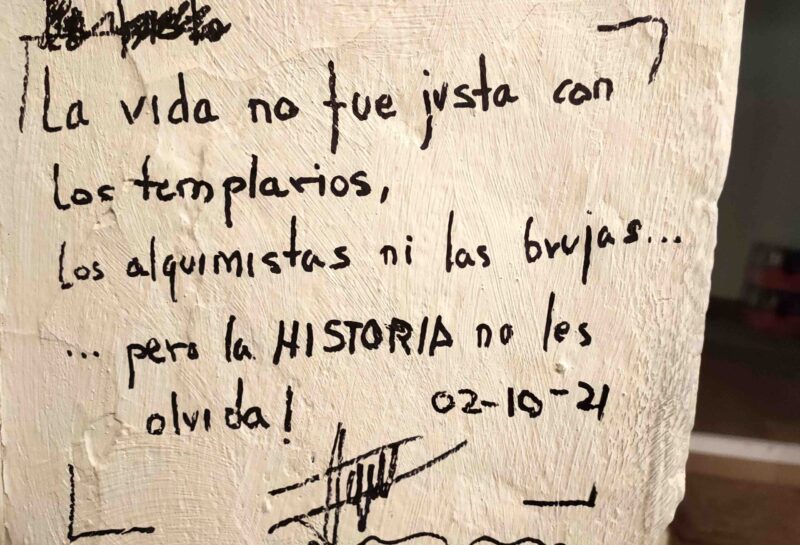 La vida no fue justa con
los templarios,
los alquimistas ni las brujas...
... pero la HISTORIA no les
olvida! 02-10-21